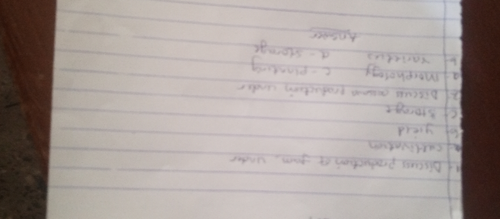 Discuss production of yam under
a. cultivation
b. yield
c. storage
Discuss cocoa production under
a. Morphology c - planting
b. varieties d - storage
Answer